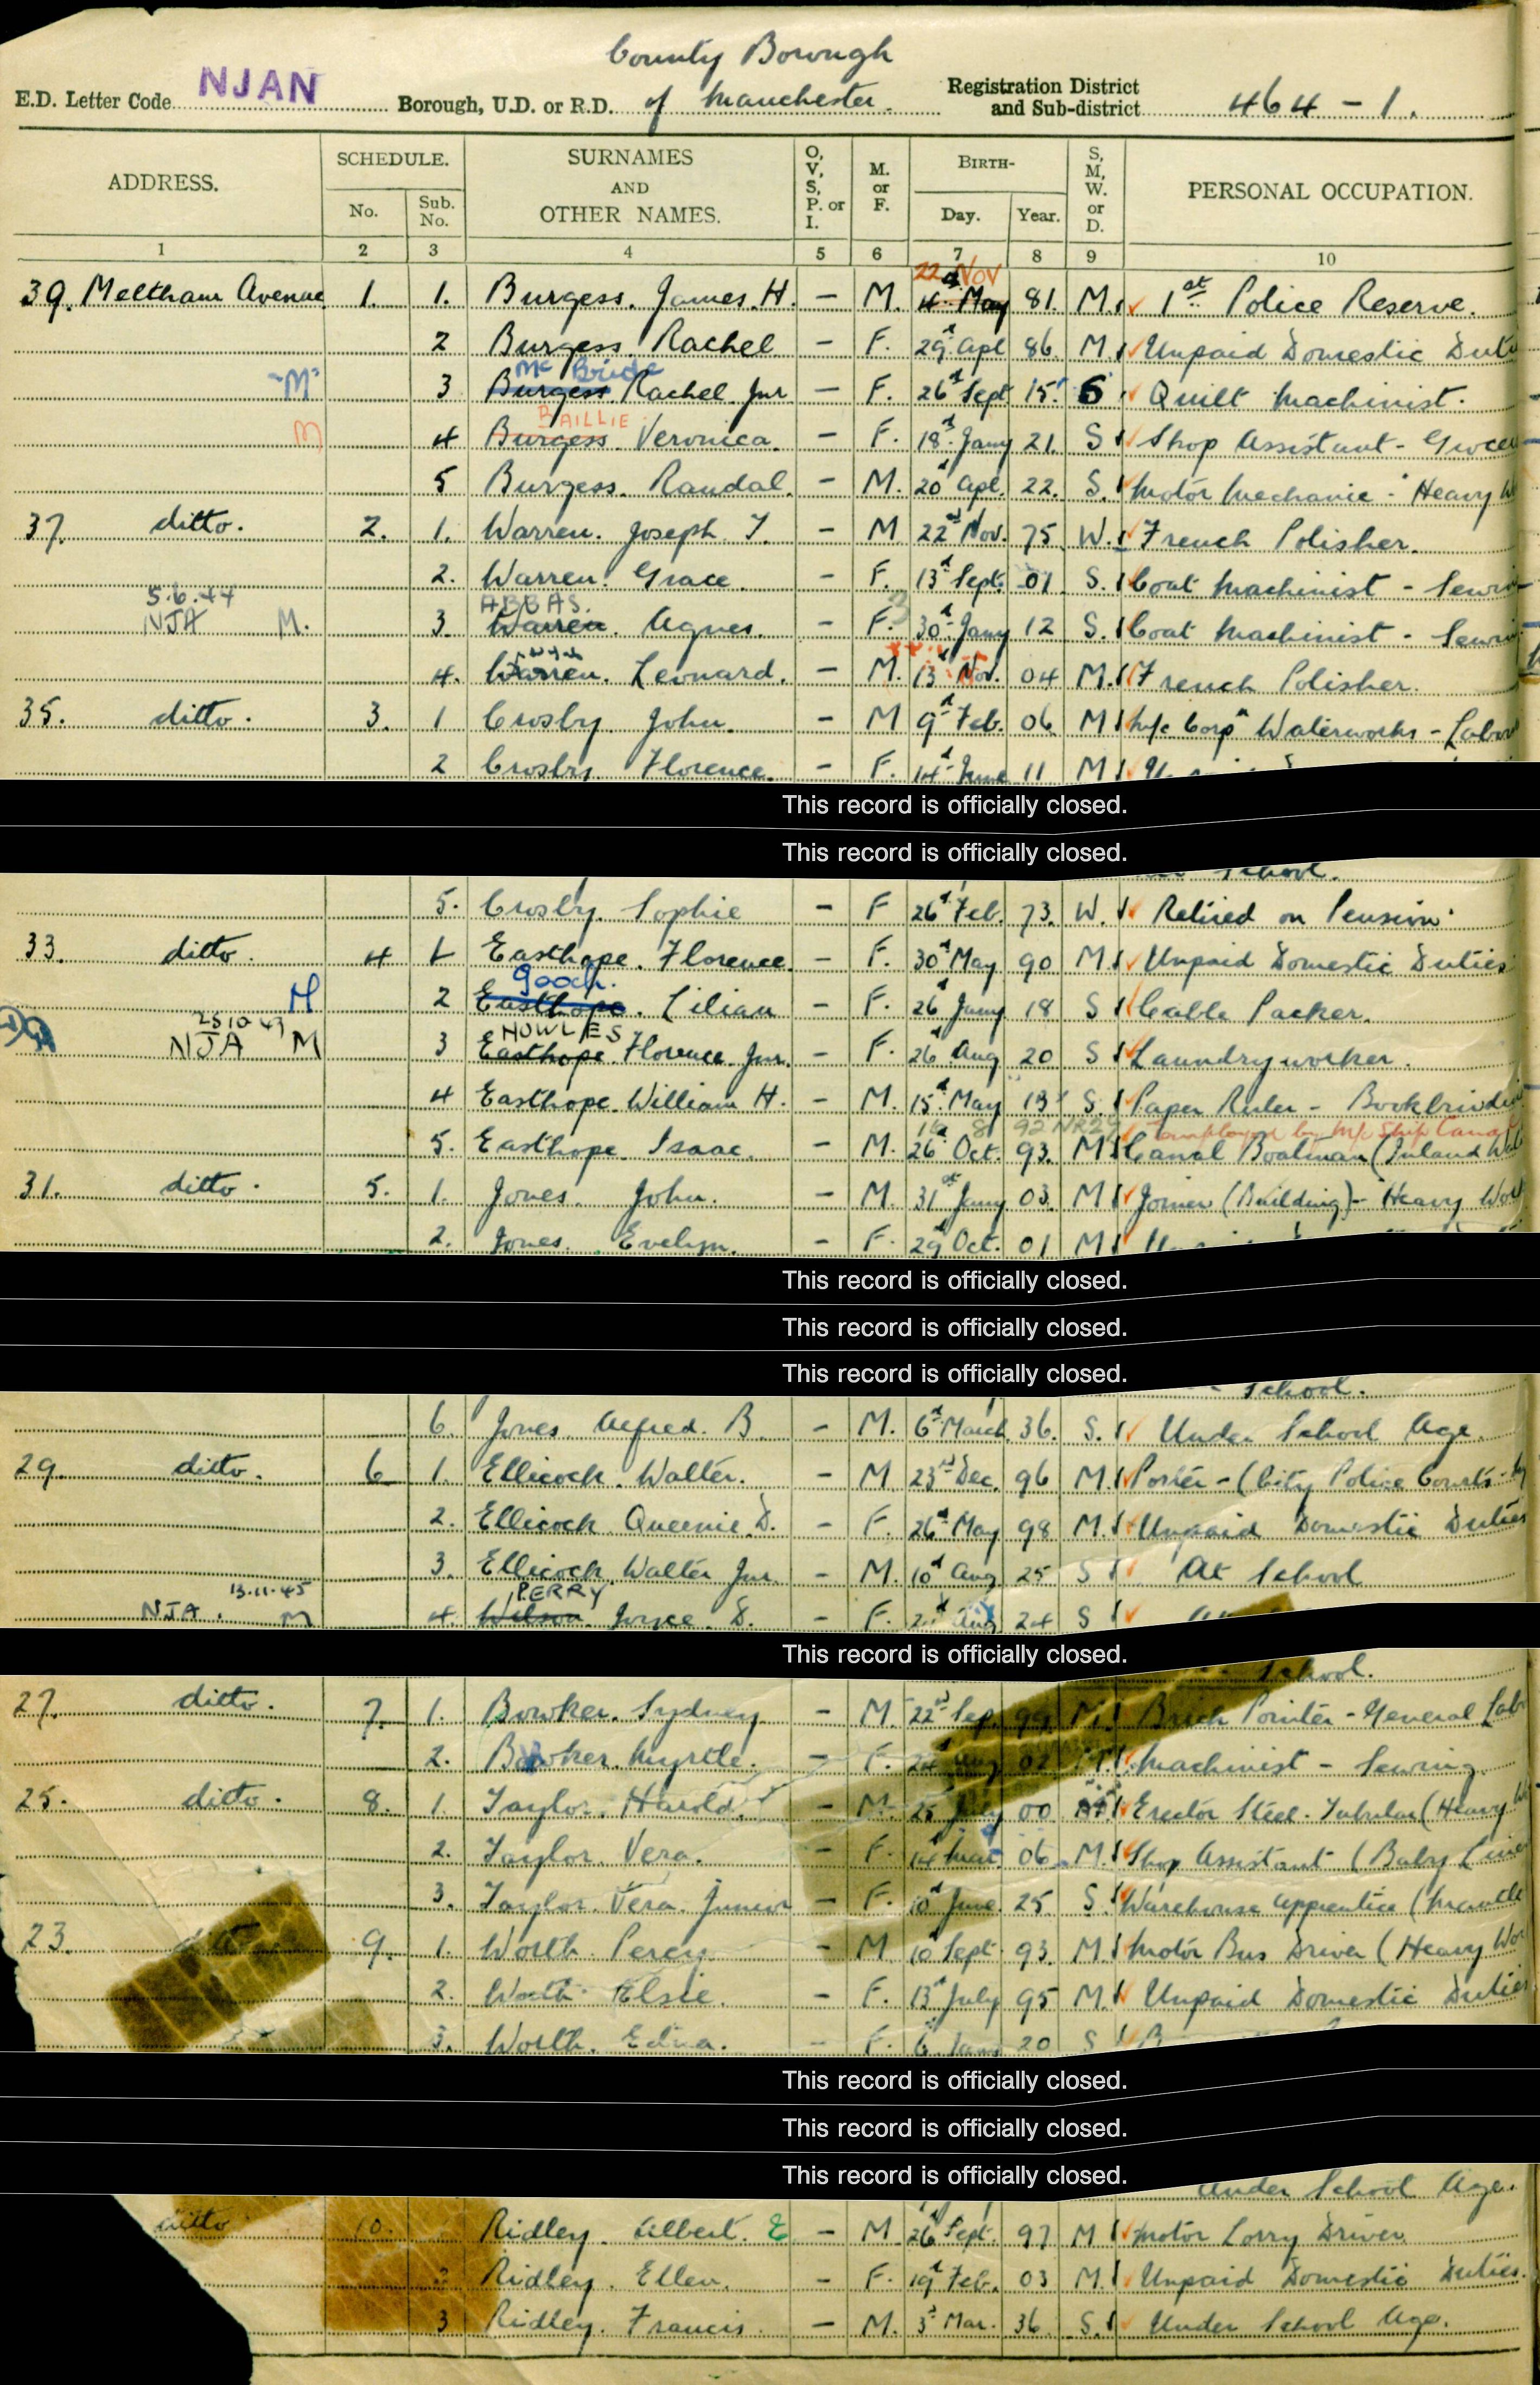 County Borough
E.D. Letter Code NJAN Borough, U.D. or R.D. of Manchester. Registration District and Sub-district 464 - 1.
ADDRESS. SCHEDULE. No. Sub. No. SURNAMES AND OTHER NAMES. O, V, S, P. or I. M. or F. BIRTH- Day. Year. S, M, W. or D. PERSONAL OCCUPATION.
1 2 3 4 5 6 7 8 9 10
22 Nov
39. Meltham Avenue 1. 1. Burgess. James H. - M. 4 May 81. M. 1st Police Reserve.
2 Burgess. Rachel - F. 29 Apl 86. M. Unpaid Domestic Duti
Mc Bride
"M" 3 Burgess Rachel Jnr - F. 26 Sept 15. S Quilt Machinist.
BAILLIE
M 4 Burgess. Veronica. - F. 18 Jany 21. S Shop Assistant - Groce
5 Burgess. Randal. - M. 20 Apl. 22. S. Motor Mechanic - Heavy W
37. ditto. 2. 1. Warren. Joseph T. - M 22 Nov. 75 W. French Polisher.
2. Warren. Grace. - F. 13 Sept. 01 S. Coat Machinist - Sewin
5.6.44 ABBAS.
NJA M. 3. Warren. Agnes. - F. 30 Jany 12 S. Coat Machinist - Sewin
4. Warren. Leonard. - M. 13 Nov. 04 M. French Polisher.
35. ditto. 3. 1 Crosby. John. - M 9 Feb. 06 M M/c Corpn Waterworks - Labou
2 Crosby Florence. - F. 14 June 11 M
This record is officially closed.
This record is officially closed.
School.
5. Crosby. Sophie - F 26 Feb. 73. W. Retired on Pension.
33. ditto. 4 1 Easthope. Florence. - F. 30 May 90 M. Unpaid Domestic Duties
Gooch.
M 2 Easthope. Lilian - F. 26 Jany 18 S Cable Packer.
25 10 43 HOWLES
NJA M 3 Easthope. Florence. Jnr. - F. 26 Aug 20 S Laundry worker.
4 Easthope. William H. - M. 15 May 13 S. Paper Ruler - Bookbindi
16 8 92 NR29 employed by M/c Ship Canal
5. Easthope. Isaac. - M. 26 Oct. 93. M Canal Boatman (Inland Wat
31. ditto. 5. 1. Jones. John. - M. 31st Jany 03. M Joiner (Building) - Heavy Work
2. Jones. Evelyn. - F. 29 Oct. 01 M
This record is officially closed.
This record is officially closed.
This record is officially closed.
School.
6. Jones Alfred. B. - M. 6 March 36. S. Under School Age.
29. ditto. 6 1. Ellicock. Walter. - M. 23 Dec. 96 M. Porter - (City Police Courts -
2. Ellicock. Queenie D. - F. 26 May 98 M. Unpaid Domestic Duties
3. Ellicock. Walter Jnr. - M. 10 Aug 25 S At School
13.11.45 PERRY
NJA. M 4. Wilson Joyce D. - F. Aug 24 S
This record is officially closed.
School.
27. ditto. 7. 1. Bowker. Sydney - M. 22nd Sep. 99 M. Brick Pointer - General Lab
2. Bowker. Myrtle. - F. 24 Aug 02 M. Machinist - Sewing.
25. ditto. 8. 1. Taylor. Harold. - M. 25 July 00 Erector Steel - Tubular (Heavy W
2. Taylor. Vera. - F. 14 Mar 06 M. Shop Assistant (Baby Line
3. Taylor. Vera. Junior - F. 10 June 25 S. Warehouse Apprentice (Mantle
23. 9. 1. Worth. Percy. - M 10 Sept 93. M. Motor Bus Driver (Heavy Wor
2. Worth. Elsie. - F. 13 July 95 M. Unpaid Domestic Duties
3. Worth. Edna. - F. 6 Jany 20 S
This record is officially closed.
This record is officially closed.
This record is officially closed.
Under School Age.
ditto 10. Ridley. Albert. E - M 26 Sept. 97 M Motor Lorry Driver.
2 Ridley. Ellen. - F. 19 Feb. 03 M. Unpaid Domestic Duties.
3 Ridley. Francis. - M. 3 Mar. 36 S. Under School Age.